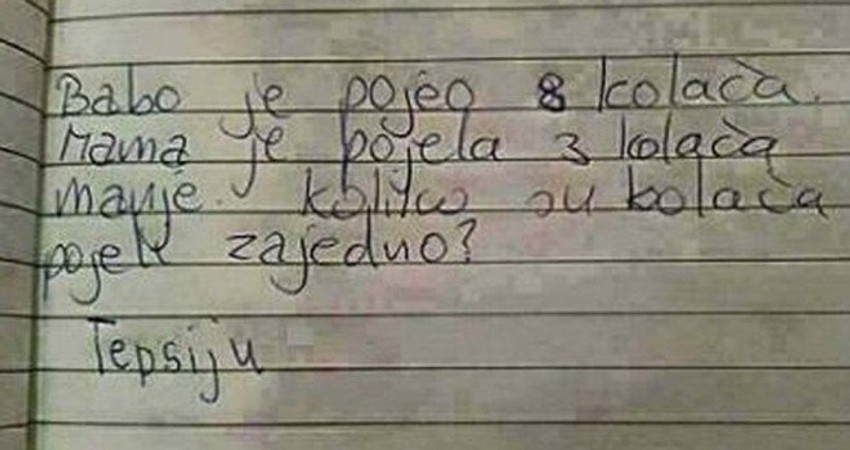 Babo je pojeo 8 kolača.
Mama je pojela 3 kolača
manje. Koliko su kolača
pojeli zajedno?
Tepsiju